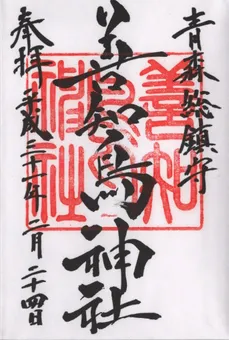 青森総鎮守
善知鳥神社
奉拝 平成二十一年二月二十四日